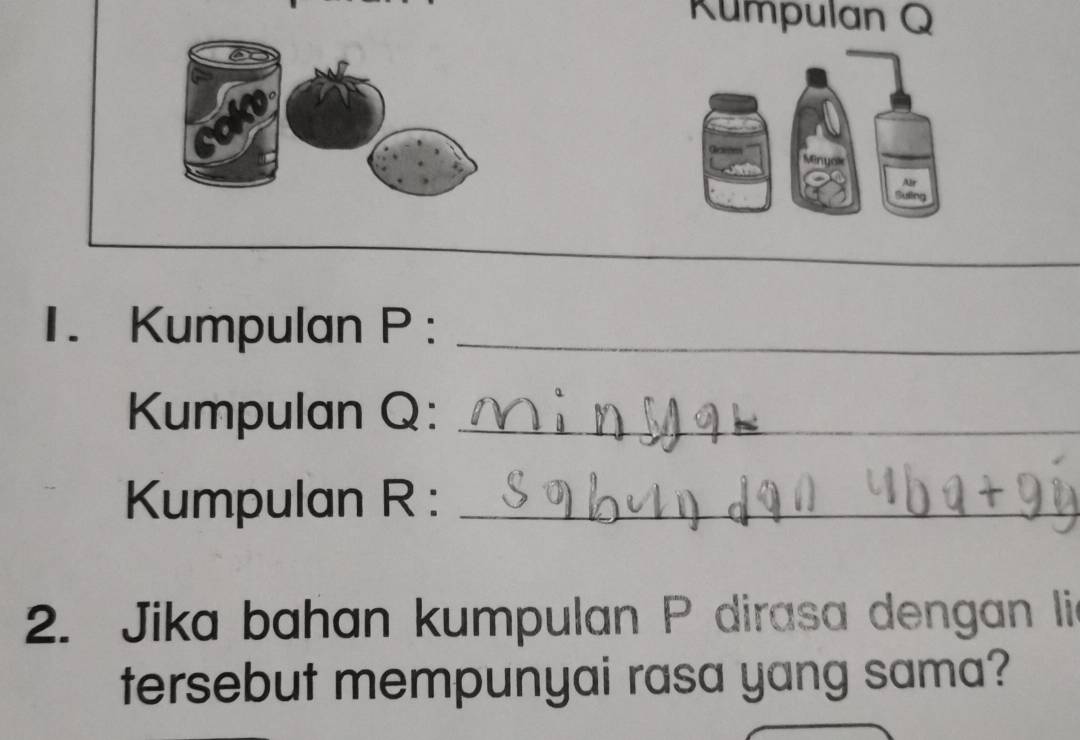 Kumpulan Q
Minyak
Air
Suling
1. Kumpulan P :
Kumpulan Q : minyak
Kumpulan R : sabun dan ubat gi
2. Jika bahan kumpulan P dirasa dengan li
tersebut mempunyai rasa yang sama?